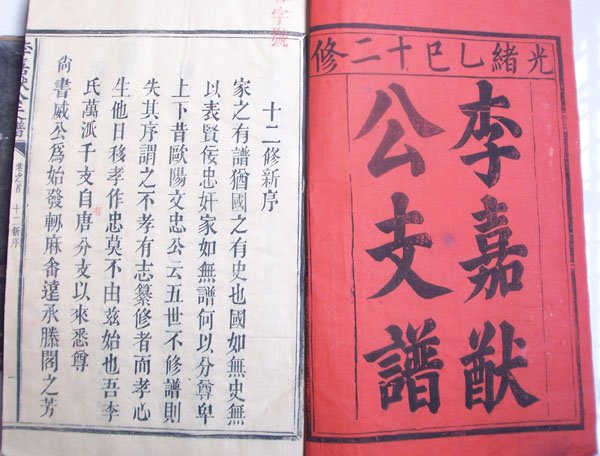 光緒乙巳十二修
李嘉猷
公支譜
字號
十二修新序
家之有譜猶國之有史也國如無史無
以表賢佞忠奸家如無譜何以分尊卑
上下昔歐陽文忠公云五世不修譜則
失其序謂之不孝有志纂修者而孝心
生他日移孝作忠莫不由茲始也吾李
有
氏萬派千支自唐分支以來悉尊
尚書威公爲始發
麻畬遠承滕閣之芳
李嘉猷公支譜
卷之首
十二新序